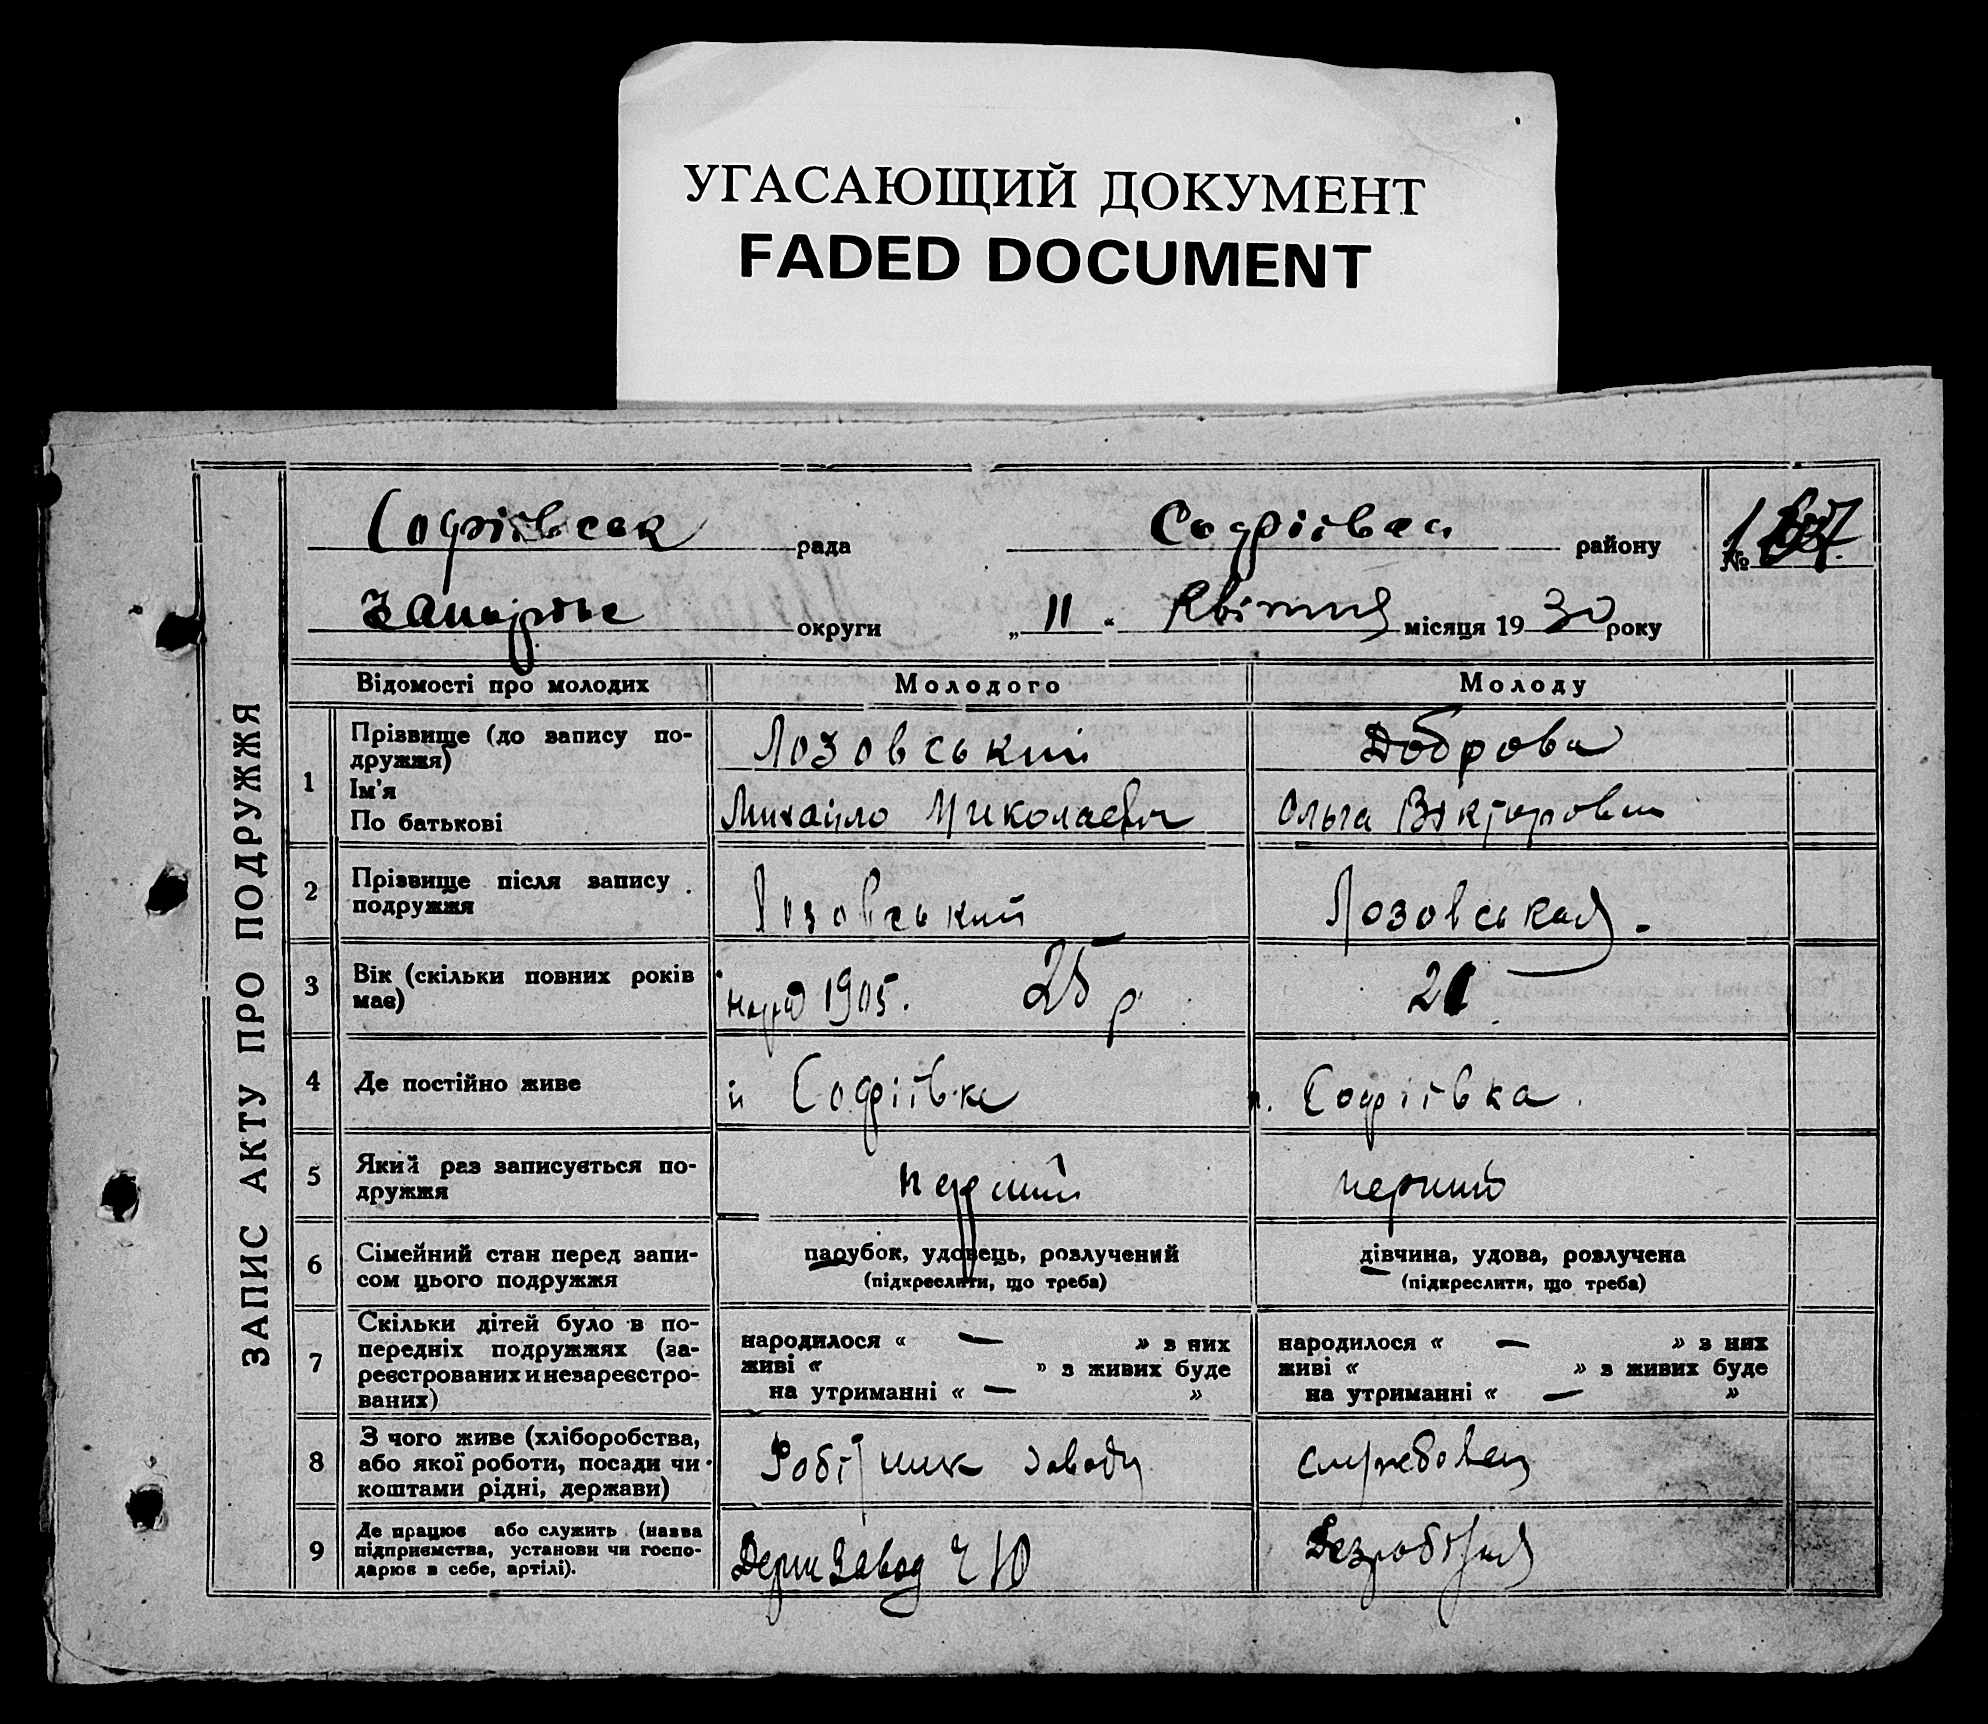 УГАСАЮЩИЙ ДОКУМЕНТ
FADED DOCUMENT
ЗАПИС АКТУ ПРО ПОДРУЖЖЯ
Софіївськ рада Софіївськ району №
округи „ 11 “ Квітня місяця 1930 року
Відомості про молодих Молодого Молоду
1 Прізвище (до запису по-
дружжя) Лозовський Доброва
Ім'я
По батькові Михайло Миколаєвич Ольга Вікторовна
2 Прізвище після запису
подружжя Лозовський Лозовськая.
3 Вік (скільки повних років
має) 1905. 25 р 21
4 Де постійно живе Софіївка Софіївка.
5 Який раз записується по-
дружжя перший перший
6 Сімейний стан перед запи-
сом цього подружжя
парубок, удовець, розлучений
(підкреслити, що треба)
дівчина, удова, розлучена
(підкреслити, що треба)
7 Скільки дітей було в по-
передніх подружжях (за-
реєстрованих и незареєстро-
ваних)
народилося « — » з них
живі « » з живих буде
на утриманні « — »
народилося « — » з них
живі « » з живих буде
на утриманні « — »
8 З чого живе (хліборобства,
або якої роботи, посади чи
коштами рідні, держави)
Робітник заводу
9 Де працює або служить (назва
підприємства, установи чи госпо-
дарює в себе, артілі).
Держ Завод Безробітня